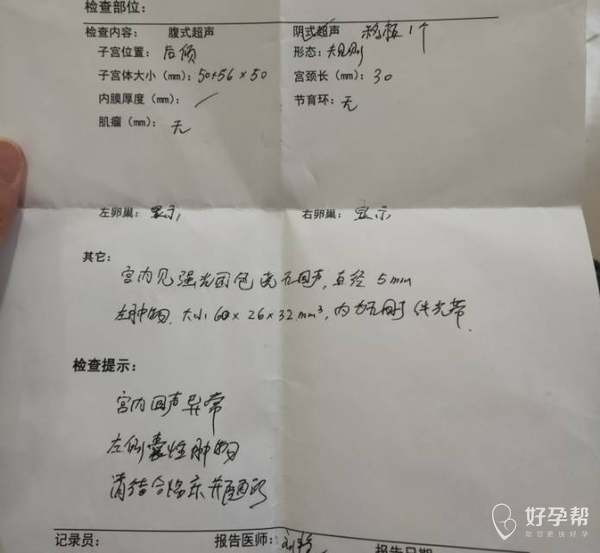 检查部位：
检查内容： 腹式超声 阴式超声 移板1个
子宫位置：后倾 形态：大规则
子宫体大小（mm）：50×56×50 宫颈长（mm）：30
内膜厚度（mm）：／ 节育环：无
肌瘤（mm）：无
左卵巢：显示 右卵巢：显示
其它：
宫内见强光团包绕无回声，直径 5mm
左肿物，大小 60×26×32mm³，内 光带
检查提示：
宫内回声异常
左侧囊性肿物
请结合临床并随访
记录员： 报告医师： 报告日期
好孕帮
助您更快好孕